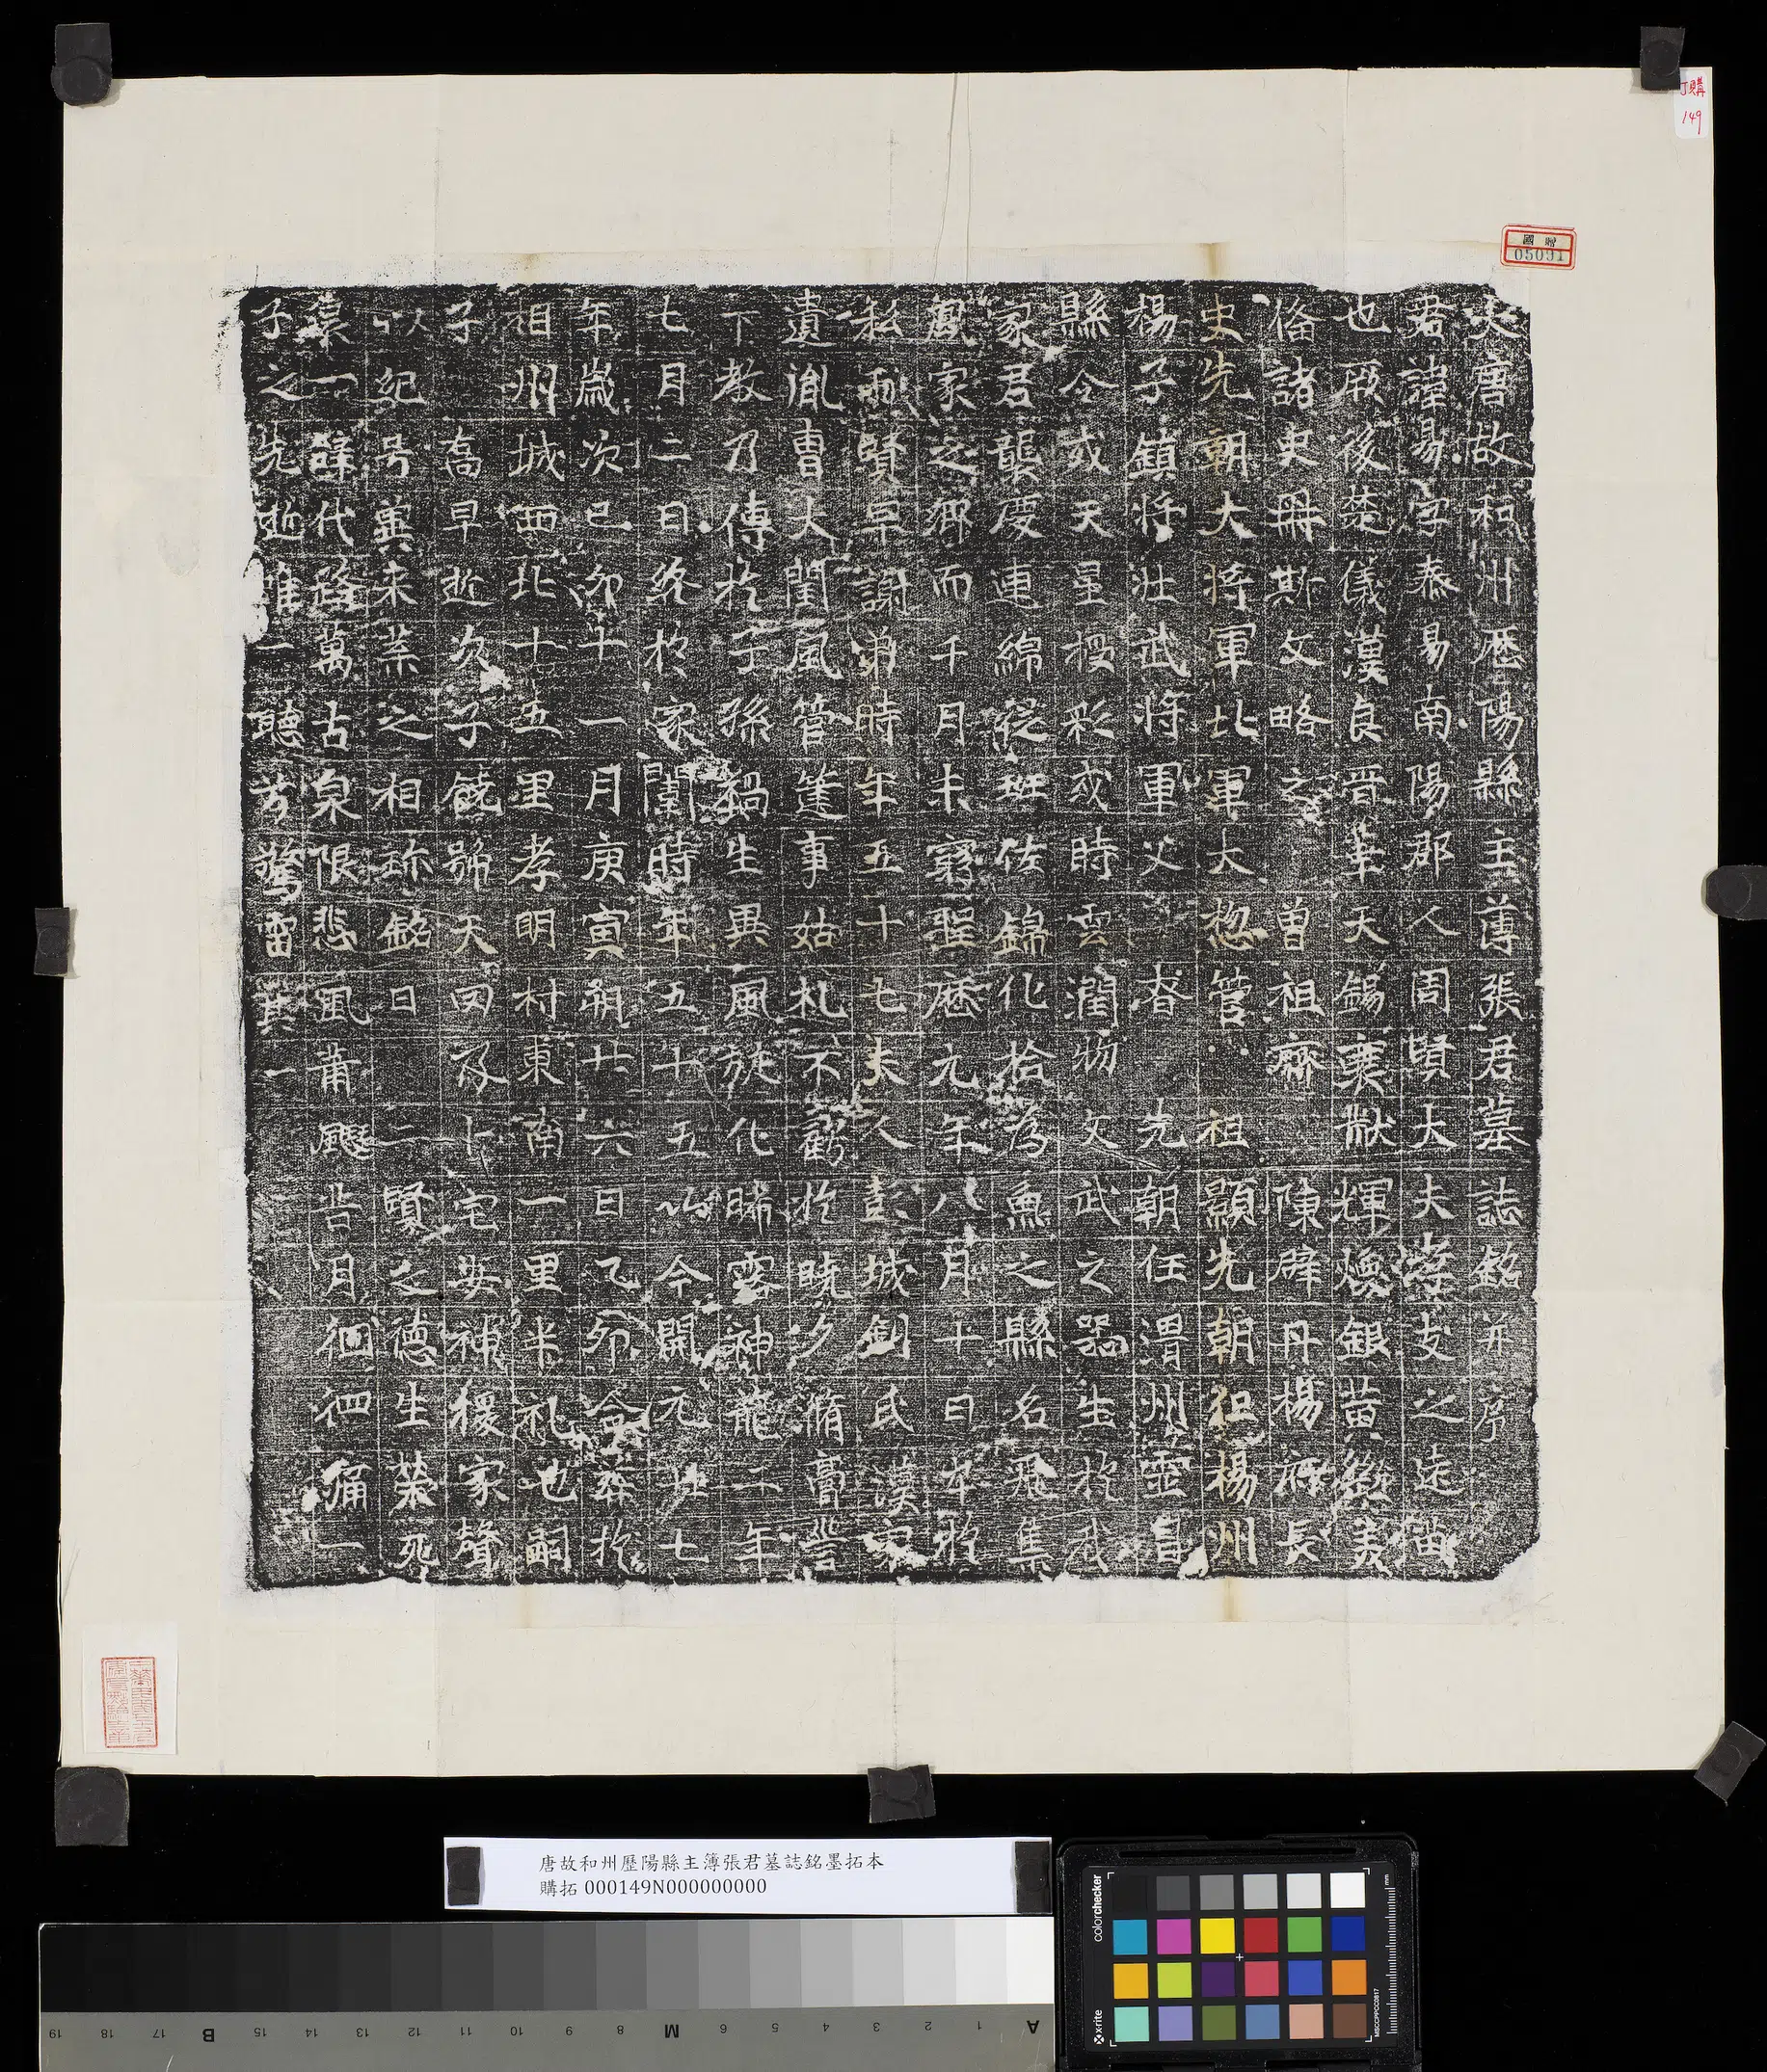 購
149
國贈
05091
大唐故和州歷陽縣主薄張君墓誌銘并序
君諱易字泰易南陽郡人周賢大夫孝友之遠苗
也厥後楚儀漢良晉華天錫奕猷輝煥銀黃徽美
俻諸史冊斯文略之曾祖齊陳辟丹楊府長
史先朝大將軍北軍大惣管祖顯先朝任楊州
楊子鎮將壯武將軍父眘先朝任渭州靈昌
縣令或天星授彩或時雲潤物文武之器生於我
家君襲慶連綿從班佐錦化拾為魚之縣名飛集
鳳家之鄉而千月未窮聖曆元年八月十日卒於
私弟時年五十七夫人彭城劉氏漢家
遺胤曹大閨風管箎事姑札不虧於曉夕滫膏
下教乃傳於子孫禍生巽風旋化晞露神龍二年
七月二日終於家闈時年五十五以今開元廿七
年歲次己卯十一月庚寅朔廿六日乙卯合葬於
相州城西北十五里孝明村東南一里米禮也嗣
子喬早逝次子饒號天思卜宅安神穫家聲
以紀号冀來葉之相稱銘曰二賢之德生榮死
哀一辞代路萬古泉恨悲風莆颼告月徊徊痛一
子之先逝唯一聽於驚雷其一
唐故和州歷陽縣主簿張君墓誌銘墨拓本
購拓 000149N000000000
colorchecker
x-rite
MSCCPPCC0817
mm
A 1 2 3 4 5 6 M 8 9 10 11 12 13 14 15 B 17 18 19